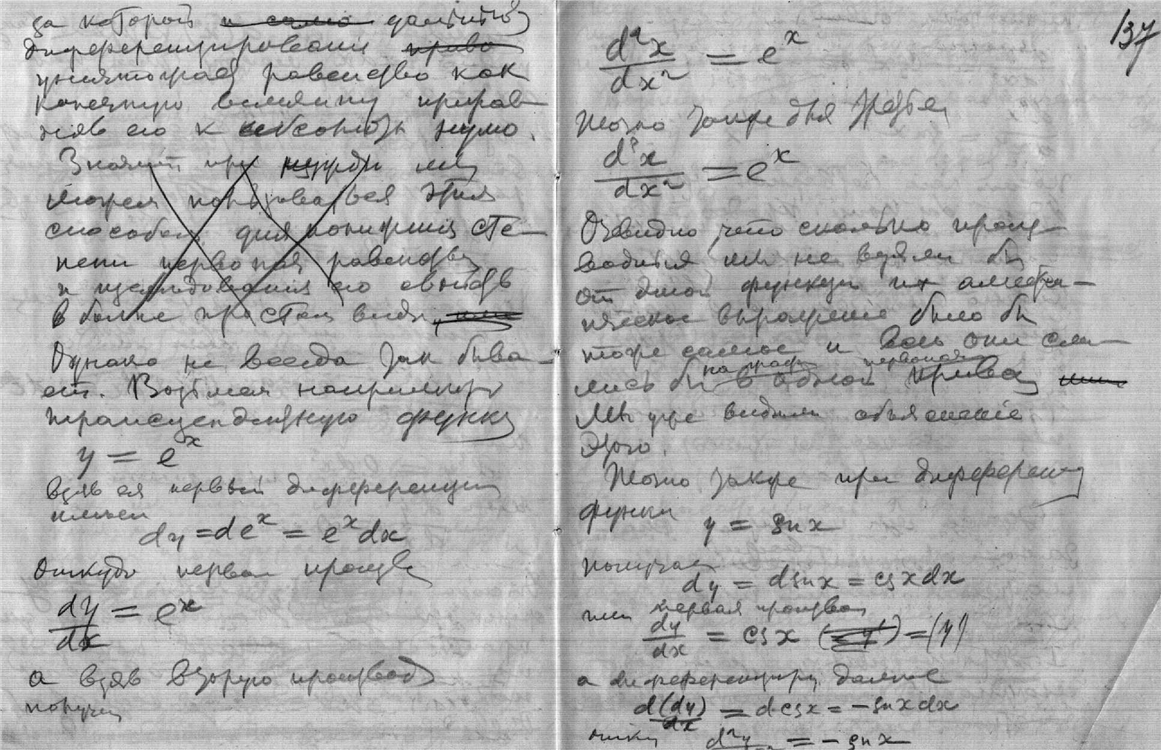 за которой и само
дифференцировании
уравнение равенство как
конечную величину прирав
няв его к нулю.
Значит при мы
можем пользоваться этим
способом для сте-
пени равенства
и его
в более простом виде,
Однако не всегда так быва-
ет. Возьмем например
трансцендентную функц
y = e^x
взяв ея первый дифференциал
имеем
dy = de^x = e^x dx
откуда первая произв
dy/dx = e^x
а взяв вторую производ
получ
137
d²x/dx² = e^x
Точно также для третьей
d³x/dx² = e^x
Очевидно что сколько произ-
водных мы не взяли бы
от этой функции их алгебра-
ическое выражение было бы
тоже самое и все они сли-
лись бы в одной кривой
Мы уже видели объяснение
этого.
Точно также при дифференц
функции
y = sn x
получаем
dy = dsnx = csxdx
или первая производ
dy/dx = cs x (y') = (y')
а дифференцируя далее
d(dy)/dx = dcsx = −snxdx
откуда d²y = −snx